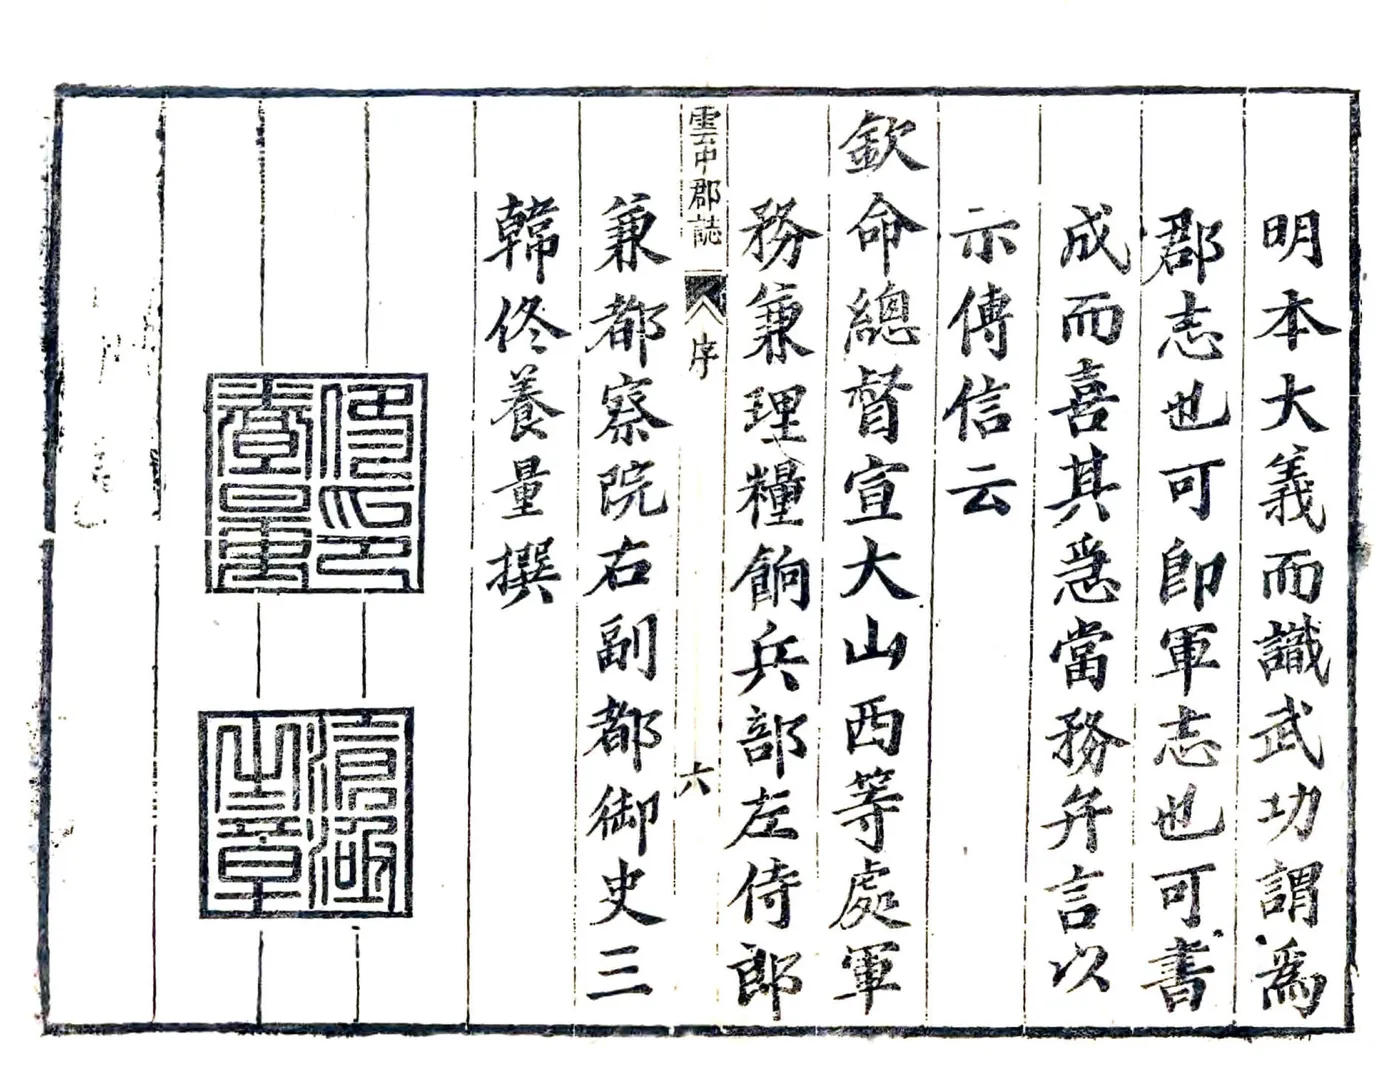 明本大義而識武功謂爲
郡志也可即軍志也可書
成而喜其急當務弁言以
示傳信云
欽命總督宣大山西等處軍
務兼理糧餉兵部左侍郎
雲中郡誌
序
六
兼都察院右副都御史三
韓佟養量撰
佟養量印
之章